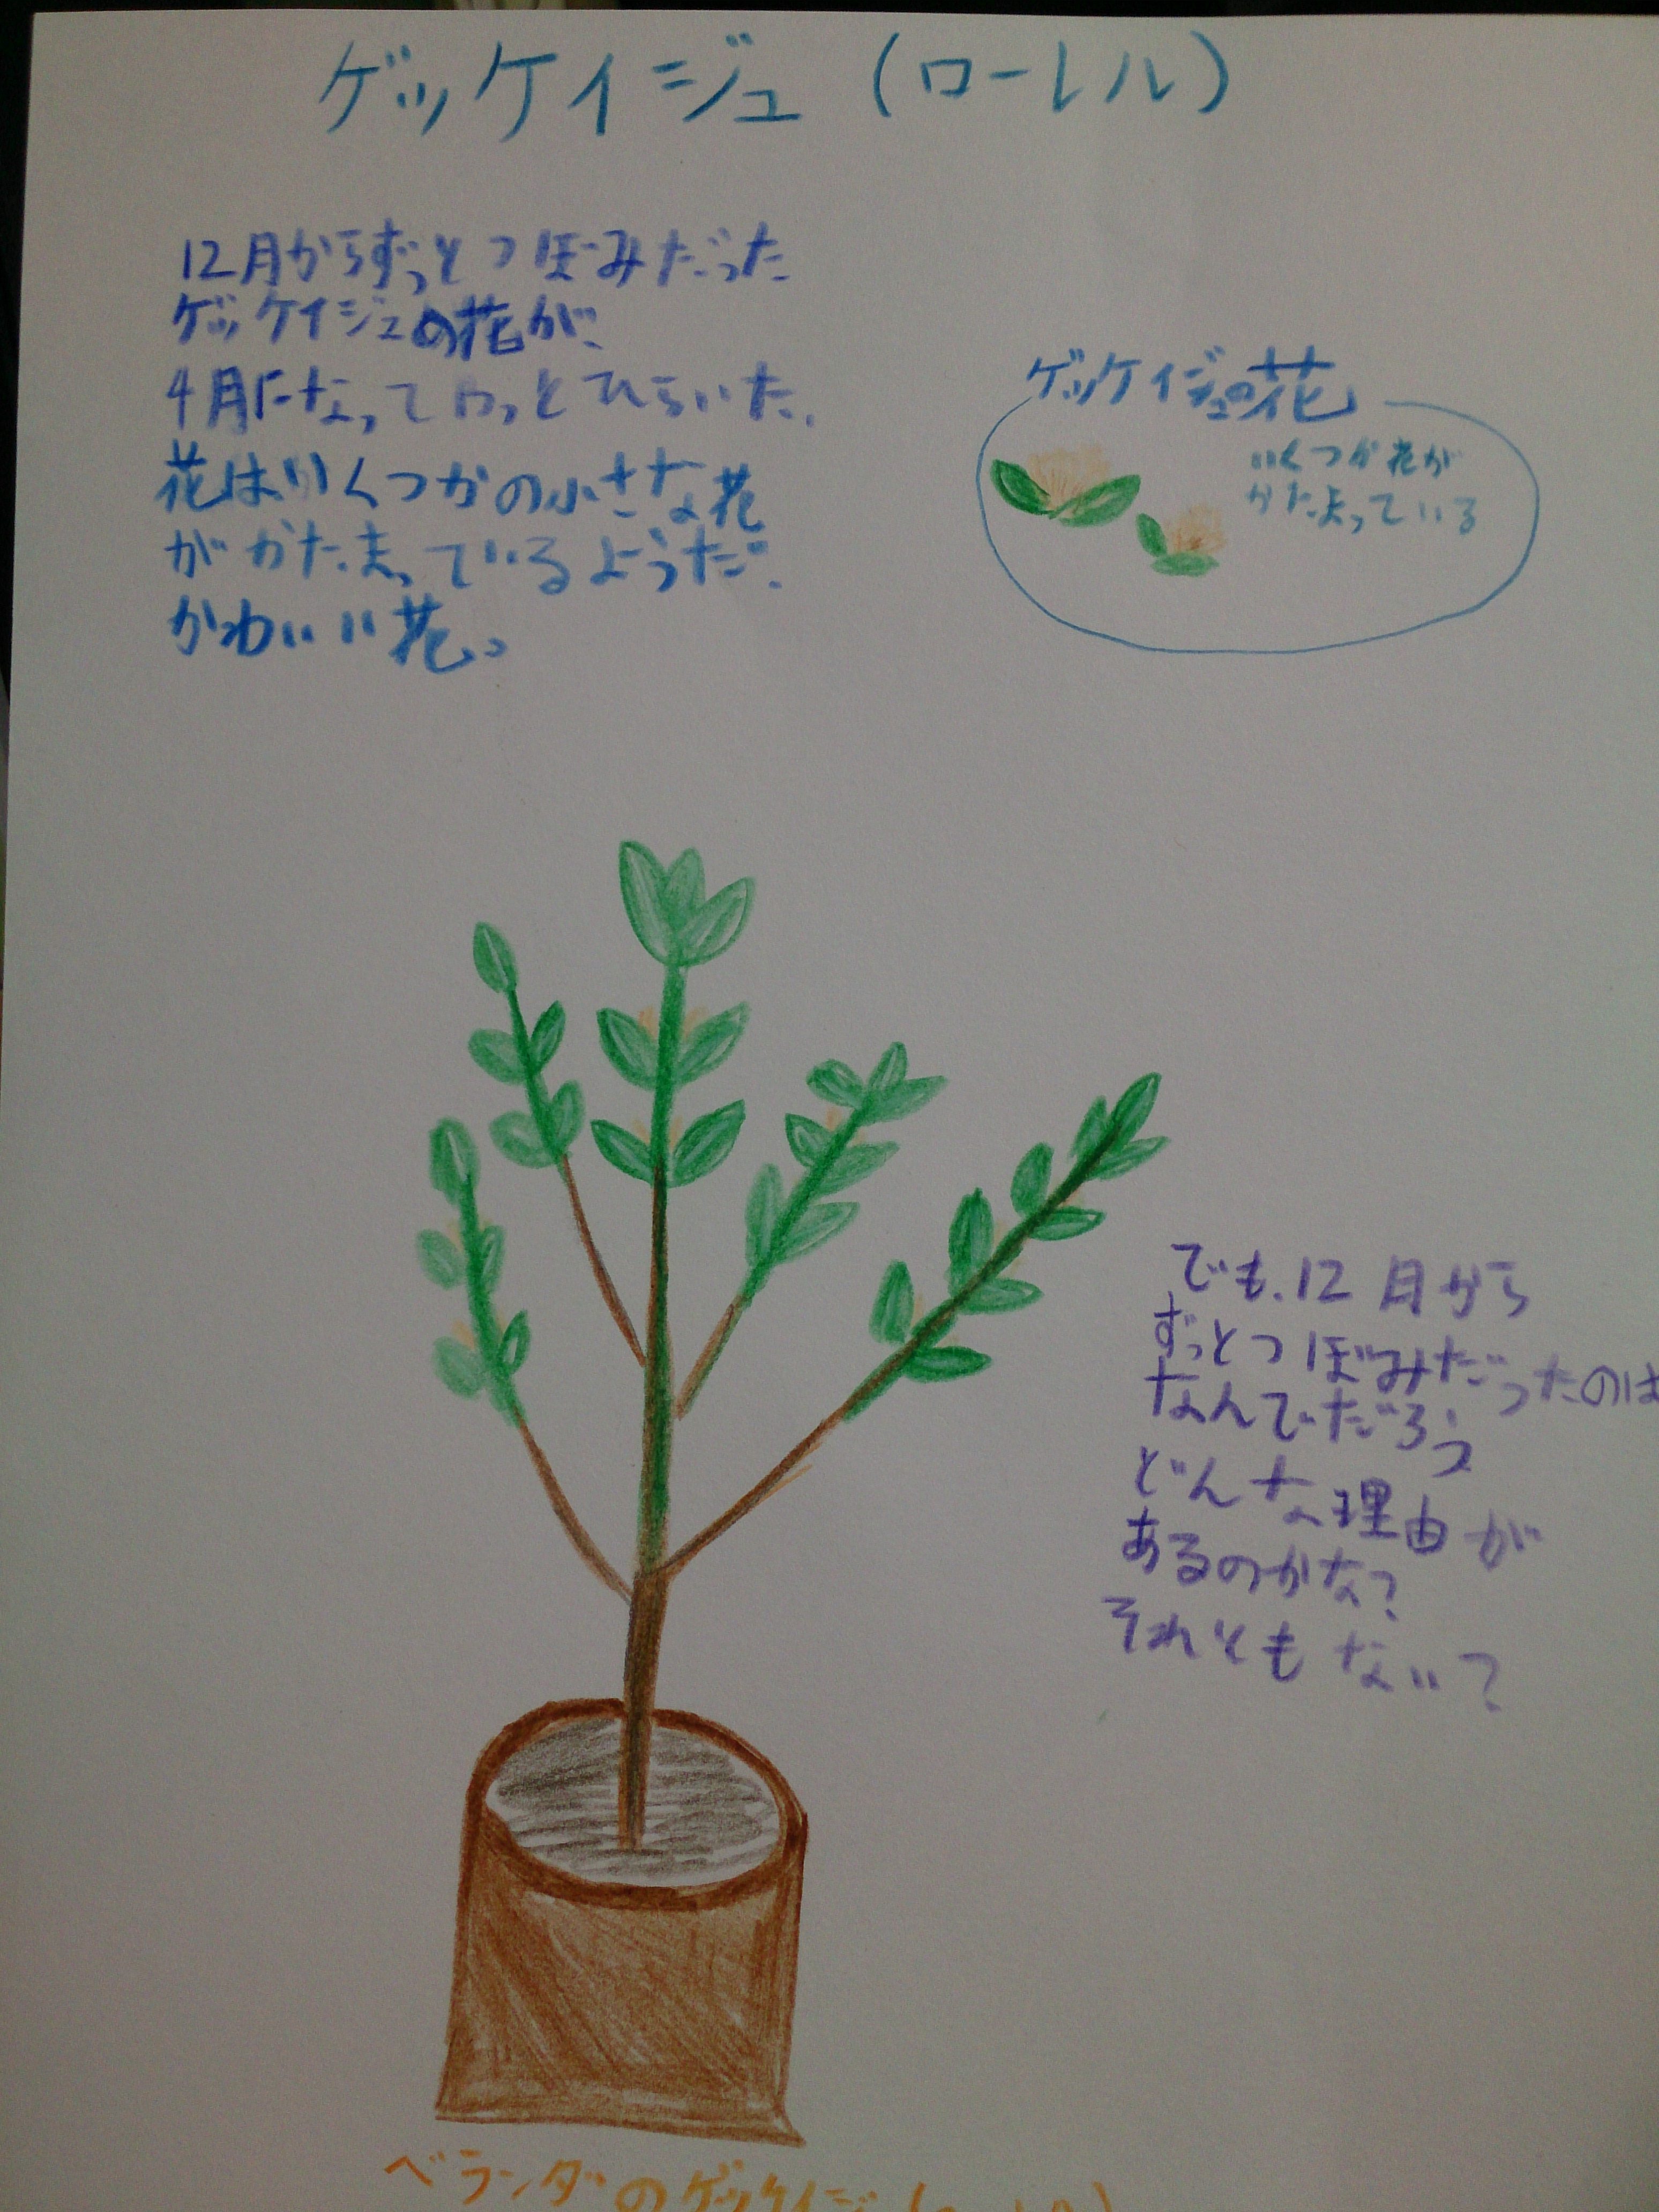 ゲッケイジュ(ローレル)
12月からずっとつぼみだった
ゲッケイジュの花が、
4月になってやっとひらいた。
花はいくつかの小さな花
がかたまっているようだ。
かわいい花。
ゲッケイジュの花
いくつか花が
かたまっている
でも、12月から
ずっとつぼみだったのは
なんでだろう
どんな理由が
あるのかな?
それともない?
ベランダのゲッケイジ